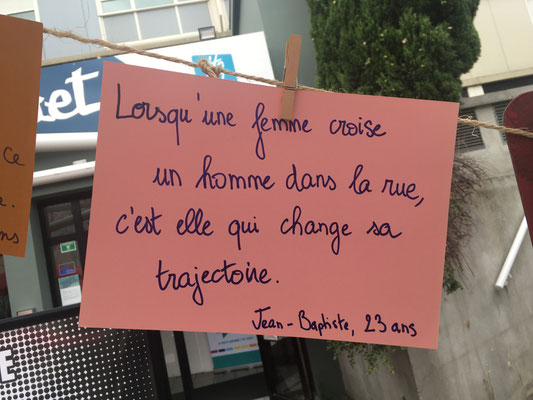 Lorsqu'une femme croise
un homme dans la rue,
c'est elle qui change sa
trajectoire.
Jean-Baptiste, 23 ans
ket
ce
ns
E